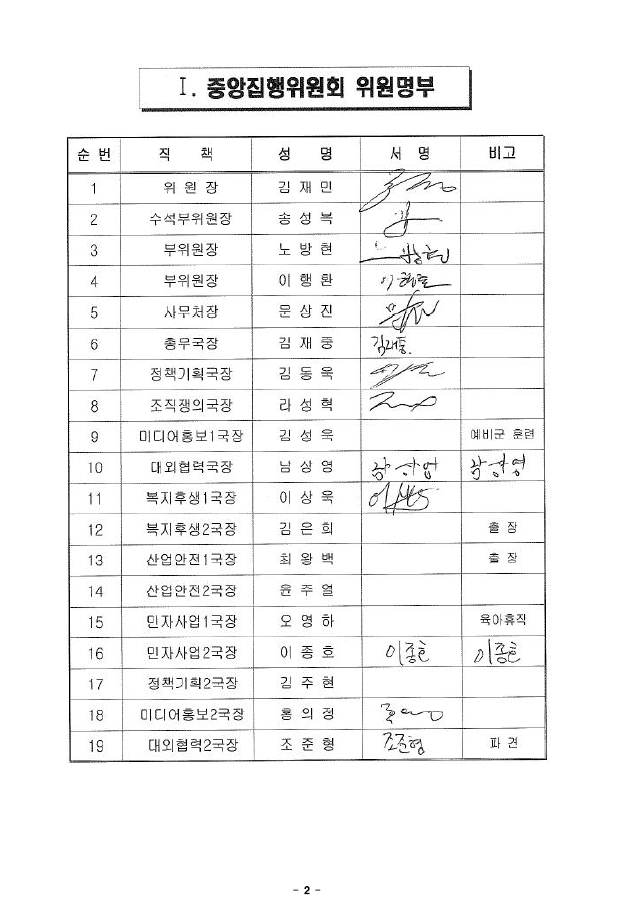 Ⅰ. 중앙집행위원회 위원명부
순 번 직 책 성 명 서 명 비고
1 위 원 장 김 재 민
2 수석부위원장 송 성 복
3 부위원장 노 방 현
4 부위원장 이 행 환
5 사무처장 문 상 진
6 총무국장 김 재 동 김재동.
7 정책기획국장 김 동 욱
8 조직쟁의국장 라 성 혁
9 미디어홍보1국장 김 성 욱 예비군 훈련
10 대외협력국장 남 상 영
11 복지후생1국장 이 상 욱
12 복지후생2국장 김 은 희 출 장
13 산업안전1국장 최 왕 백 출 장
14 산업안전2국장 윤 주 열
15 민자사업1국장 오 영 하 육아휴직
16 민자사업2국장 이 종 호 이종호 이종호
17 정책기획2국장 김 주 현
18 미디어홍보2국장 홍 의 정
19 대외협력2국장 조 준 형 조준형 파 견
- 2 -